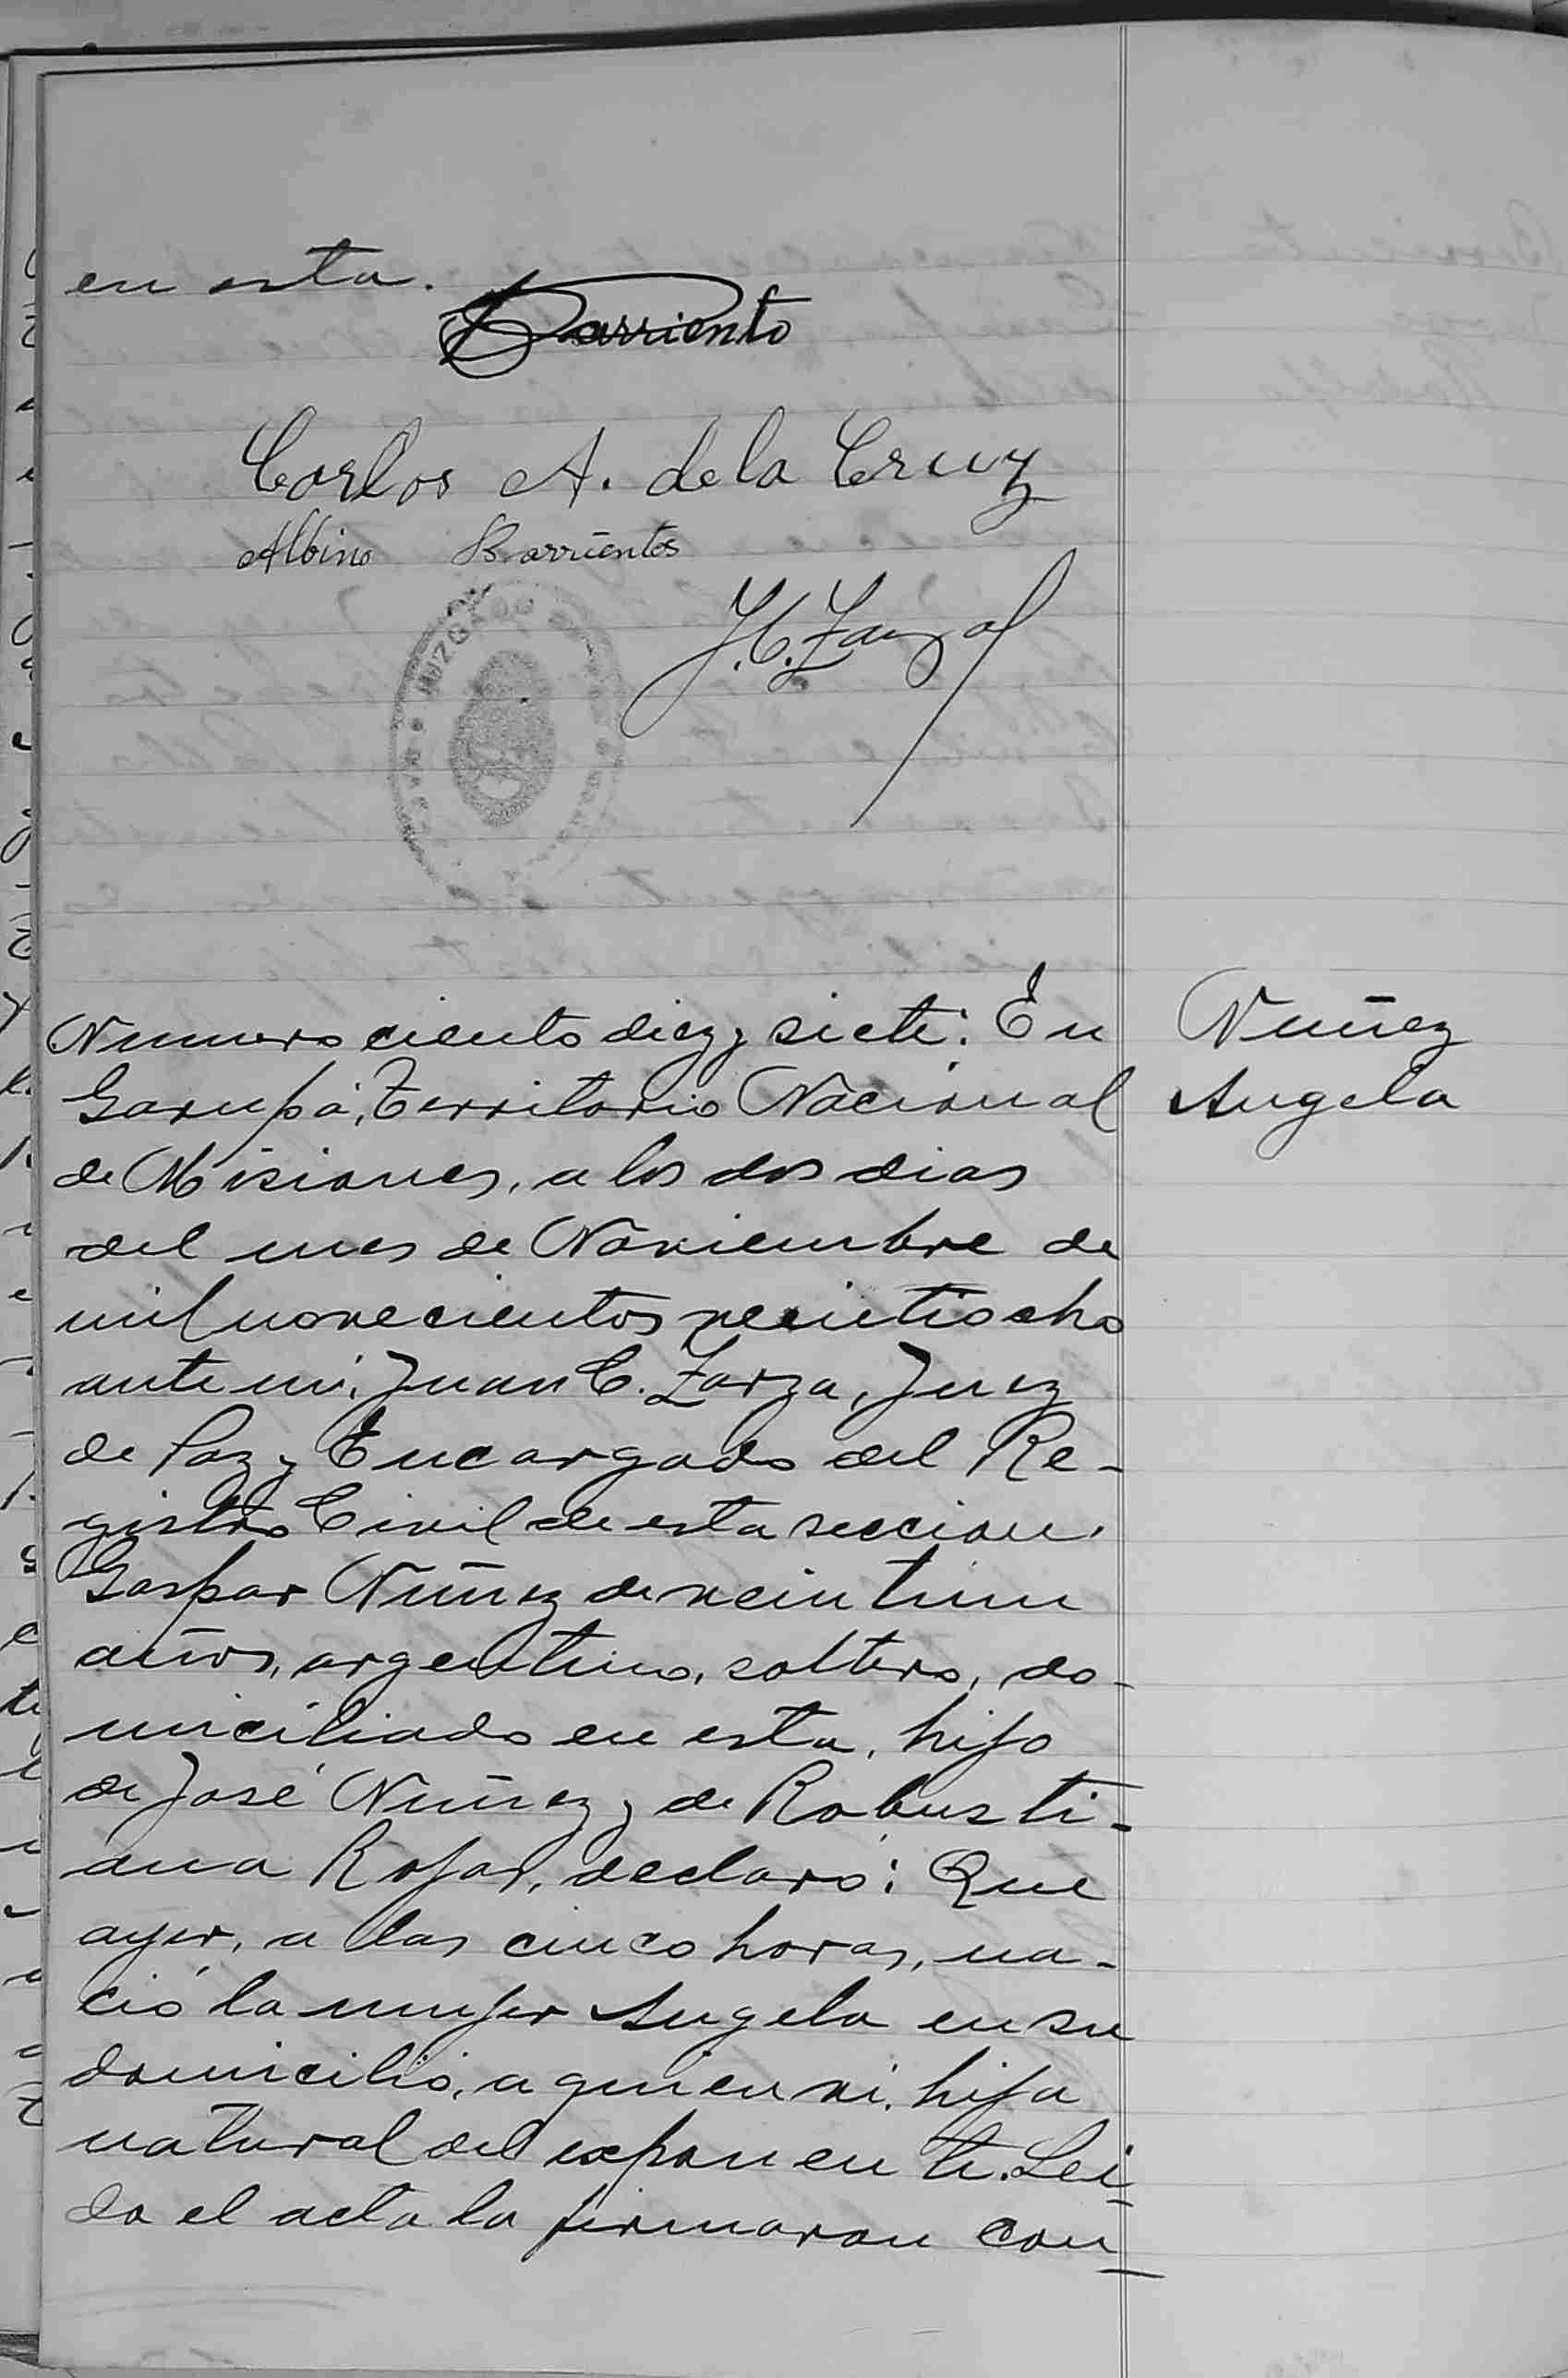 en esta.
Barriento
Carlos A. de la Cruz
Albino Barrientos
J. C. Zarza
JUZGADO
Numero ciento diez y siete: En
Garupá, Territorio Nacional
de Misiones, a los dos dias
del mes de Noviembre de
mil novecientos veintiocho
ante mi, Juan C. Zarza, Juez
de Paz y Encargado del Re-
gistro Civil de esta seccion,
Gaspar Nuñez de veintiun
años, argentino, soltero, do-
miciliado en esta, hijo
de José Nuñez y de Robusti-
ana Rojas, declaró: Que
ayer, a las cinco horas, na-
ció la mujer Angela en su
domicilio, a quien vi, hija
natural del exponente. Lei-
da el acta la firmaron con-
Nuñez
Angela